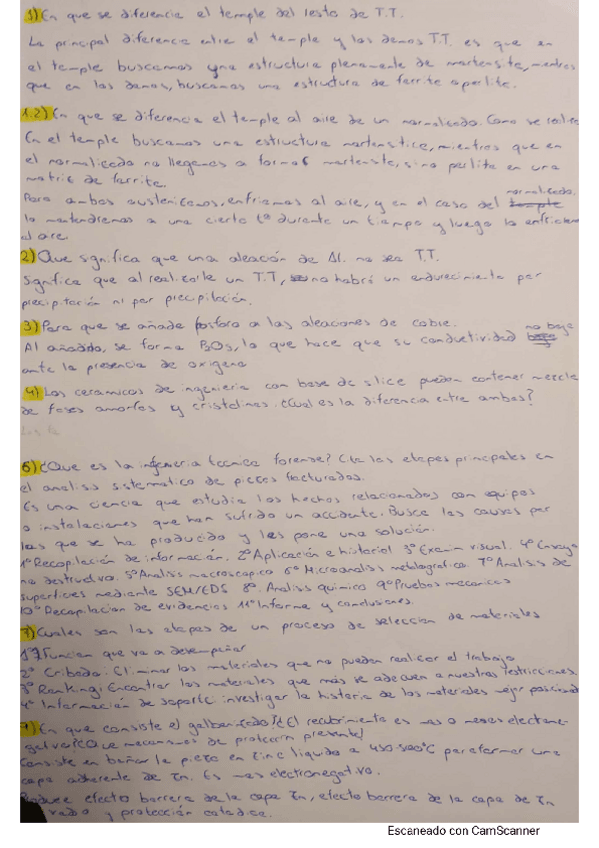 1) En que se diferencia el temple del resto de T.T.
La principal diferencia entre el temple y los demas T.T. es que en
el temple buscamos una estructura plenamente de martensita, mientras
que en los demas, buscamos una estructura de ferrita o perlita.
1.2) En que se diferencia el temple al aire de un normalizado. Como se realiza
En el temple buscamos una estructura martensitica, mientras que en
el normalizado no llegamos a formar martensita, sino perlita en una
matriz de ferrita.
Para ambos austenizamos, enfriamos al aire, y en el caso del temple normalizado
lo mantendremos a una cierta tª durante un tiempo y luego lo enfriamos
al aire
2) Que significa que una aleación de Al. no sea T.T.
Significa que al realizarle un T.T, no habrá un endurecimiento por
precipitación ni por precipitación.
3) Para que se añade fosforo a las aleaciones de cobre.
Al añadirlo, se forma P2O5, lo que hace que su conductividad no baje
ante la presencia de oxigeno
4) Los ceramicos de ingenieria con base de silice pueden contener mezcla
de fases amorfas y cristalinas. ¿Cual es la diferencia entre ambas?
6) ¿Que es la ingenieria tecnica forense? Cite las etapas principales en
el analisis sistematico de piezas fracturadas.
Es una ciencia que estudia los hechos relacionados con equipos
o instalaciones que han sufrido un accidente. Busca las causas por
las que se ha producido y les pone una solución.
1º Recopilación de información. 2º Aplicación e historial 3º Examen visual. 4º Ensayo
no destructivo. 5º Analisis macroscopico 6º Microanalisis metalografico. 7º Analisis de
superficies mediante SEM/EDS 8º. Analisis quimico 9º Pruebas mecanicas
10º Recopilacion de evidencias 11º Informe y conclusiones.
7) Cuales son las etapas de un proceso de seleccion de materiales
1º Funcion que va a desempeñar
2º Cribado: Eliminar los materiales que no puedan realizar el trabajo
3º Ranking: Encontrar los materiales que mas se adecuen a nuestras restricciones
4º Información de soporte: investigar la historia de los materiales mejor posicionad
9) En que consiste el galvanizado? ¿El recubrimiento es mas o menos electrone-
gativo? ¿Que mecanismos de protección presenta?
Consiste en bañar la pieza en zinc liquido a 450-500ºC para formar una
capa adherente de Zn. Es mas electronegativo.
Produce efecto barrera de la capa Zn, efecto barrera de la capa de Zn
y protección catodica.
Escaneado con CamScanner